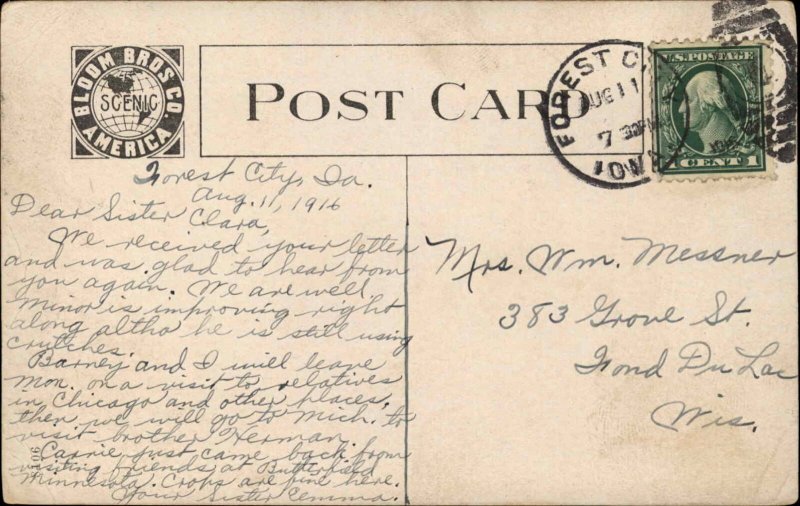 BLOOM BROS CO.
SCENIC
AMERICA
POST CARD
FOREST C
AUG 11
7 30PM
IOWA
U.S. POSTAGE
1 CENT 1
Forest City, Ia.
Aug. 11, 1916
Dear Sister Clara,
We received your letter
and was glad to hear from
you again. We are well
Minor is improving right
along altho he is still using
crutches.
Barney and I will leave
Mon. on a visit to relatives
in Chicago and other places,
then we will go to Mich. to
visit brother Herman.
Carrie just came back from
visiting friends at Butterfield
Minnesota. Crops are fine here.
Your Sister Emma.
Mrs. Wm. Messner
383 Grove St.
Fond Du Lac
Wis.